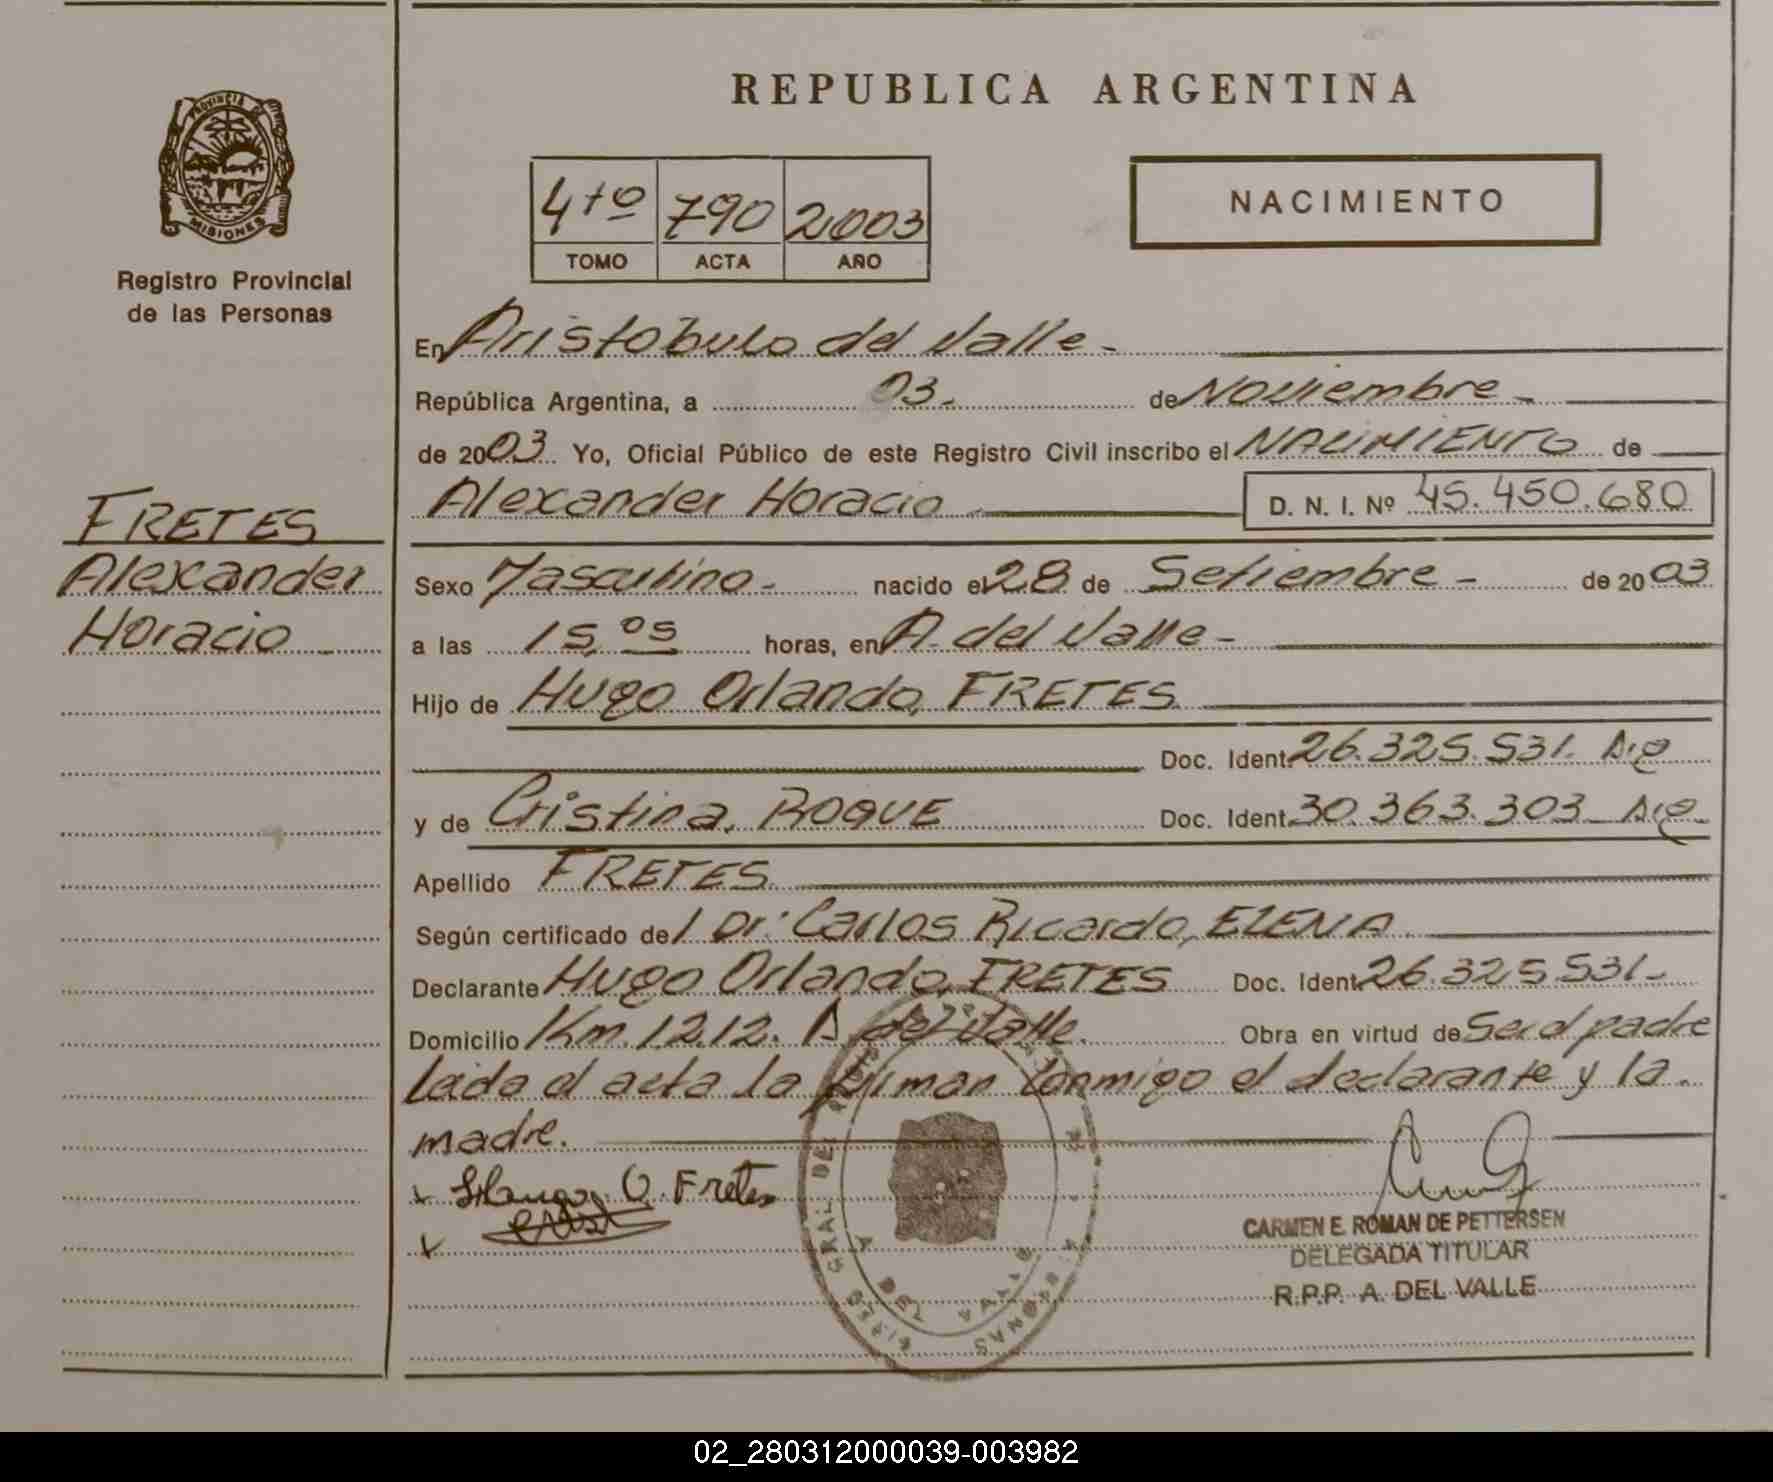 REPUBLICA ARGENTINA
PROVINCIA DE
MISIONES
Registro Provincial
de las Personas
4to 790 2003
TOMO ACTA AÑO
NACIMIENTO
FRETES
Alexander
Horacio
En Aristóbulo del Valle -
República Argentina, a 03. de Noviembre -
de 2003 Yo, Oficial Público de este Registro Civil inscribo el NACIMIENTO de
Alexander Horacio - D. N. I. Nº 45.450.680
Sexo Masculino - nacido el 28 de Setiembre - de 2003
a las 15,05 horas, en A. del Valle -
Hijo de Hugo Orlando, FRETES
Doc. Ident. 26.325.531. Arg
y de Cristina, ROQUE Doc. Ident. 30.363.303 - Arg
Apellido FRETES
Según certificado de l Dr: Carlos Ricardo, ELENA
Declarante Hugo Orlando, FRETES Doc. Ident. 26.325.531-
Domicilio Km. 1212. A. del Valle. Obra en virtud de Ser el padre
leida el acta la firman conmigo el declarante y la
madre.
Hugo O. Fretes
CARMEN E. ROMAN DE PETTERSEN
DELEGADA TITULAR
R.P.P. A. DEL VALLE
GRAL DEL
A DEL VALLE
02_280312000039-003982